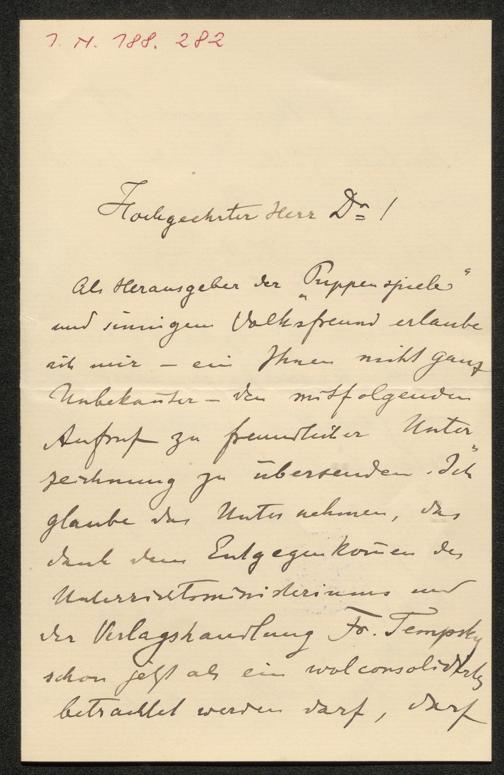 I. N. 188. 282
Hochgeehrter Herr Dr!
Als Herausgeber der „Puppenspiele“
und sinnigen Volksfreund erlaube
ich mir – ein Ihnen nicht ganz
Unbekannter – den mitfolgenden
Aufruf zu freundlicher Unter
zeichnung zu übersenden. Ich
glaube das Unternehmen, das
dank dem Entgegenkom̄en des
Unterrichtsministeriums und
der Verlagshandlung Fr. Tempsky
schon jetzt als ein wolconsolidirtes
betrachtet werden darf, darf